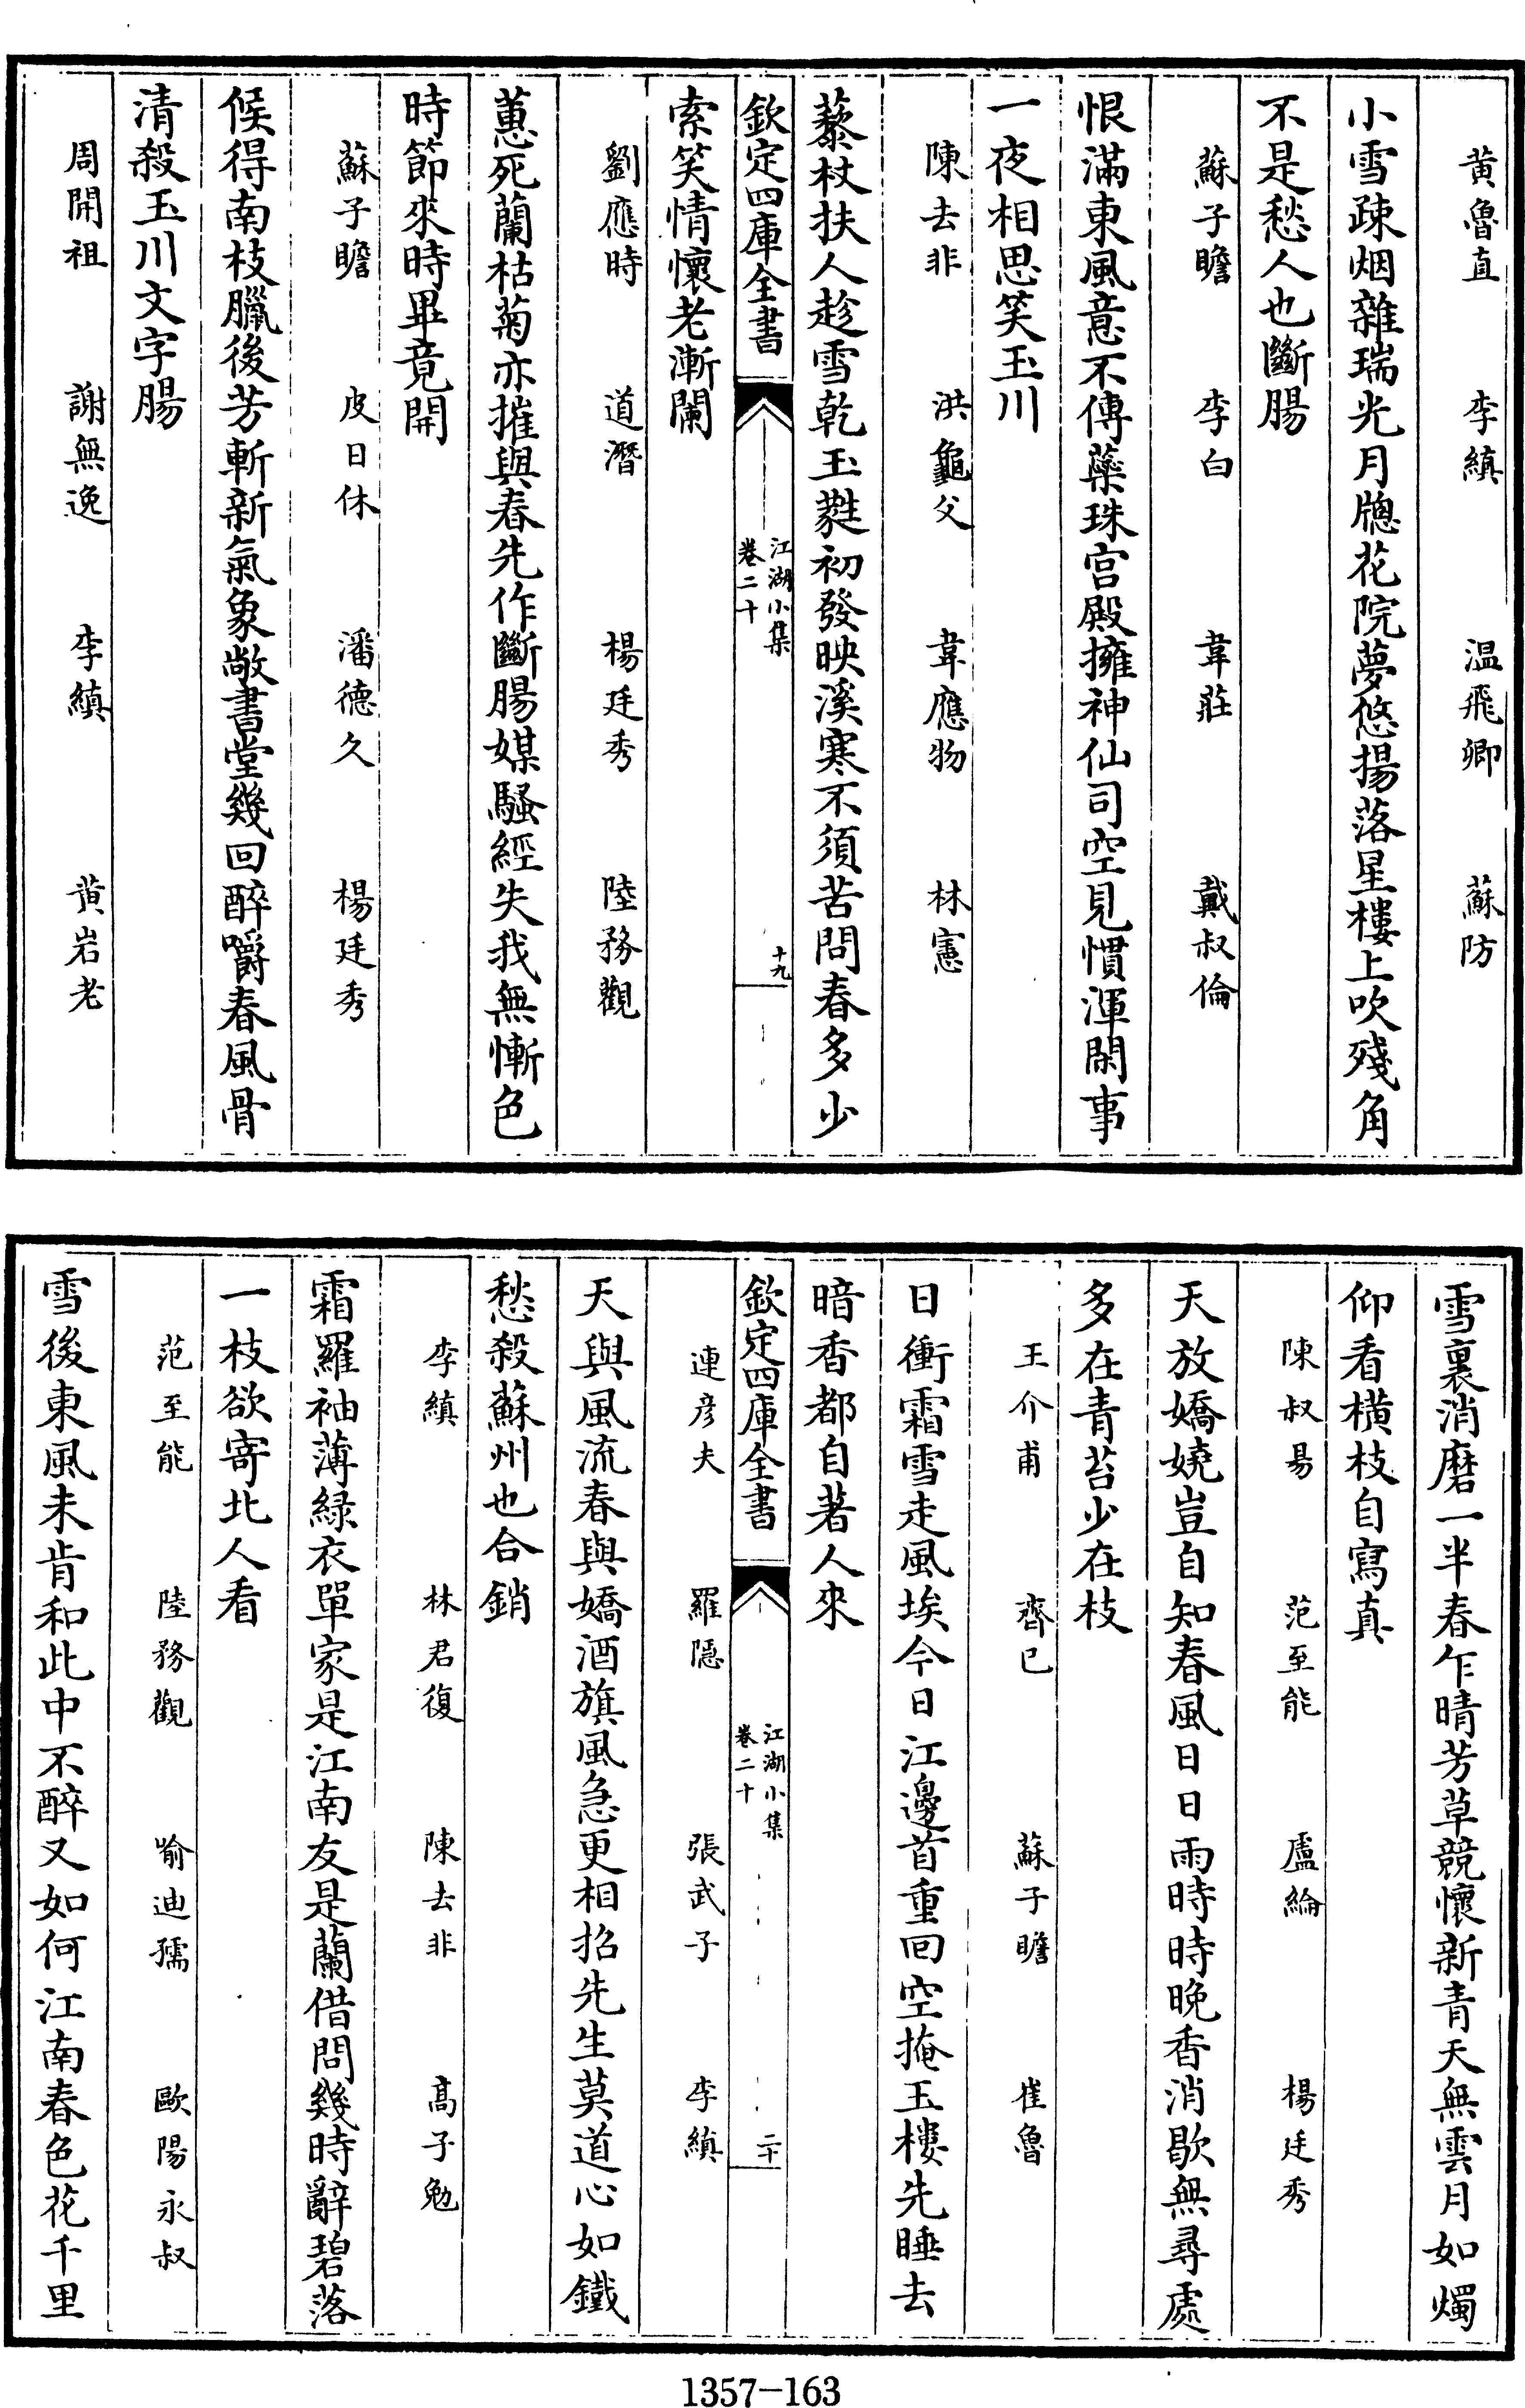 黄魯直　李縝　温飛卿　蘇防
小雪疎烟雜瑞光月牕花院夢悠揚落星樓上吹殘角
不是愁人也斷腸
蘇子瞻　李白　韋莊　戴叔倫
恨滿東風意不傳蘂珠宫殿擁神仙司空見慣渾閑事
一夜相思笑玉川
陳去非　洪龜父　韋應物　林憲
藜杖扶人趁雪乾玉蕤初發映溪寒不須苦問春多少
欽定四庫全書　江湖小集卷二十　十九
索笑情懷老漸闌
劉應時　道潛　楊廷秀　陸務觀
蕙死蘭枯菊亦摧與春先作斷腸媒騷經失我無慚色
時節來時畢竟開
蘇子瞻　皮日休　潘德久　楊廷秀
候得南枝臘後芳斬新氣象敞書堂幾回醉嚼春風骨
清殺玉川文字腸
周開祖　謝無逸　李縝　黄岩老
雪裏消磨一半春乍晴芳草競懷新青天無雲月如燭
仰看横枝自寫真
陳叔易　范至能　盧綸　楊廷秀
天放嬌嬈豈自知春風日日雨時時晚香消歇無尋處
多在青苔少在枝
王介甫　齊已　蘇子瞻　崔魯
日衝霜雪走風埃今日江邊首重回空掩玉樓先睡去
暗香都自著人來
欽定四庫全書　江湖小集卷二十　二十
連彦夫　羅隱　張武子　李縝
天與風流春與嬌酒旗風急更相招先生莫道心如鐵
愁殺蘇州也合銷
李縝　林君復　陳去非　高子勉
霜羅袖薄綠衣單家是江南友是蘭借問幾時辭碧落
一枝欲寄北人看
范至能　陸務觀　喻迪孺　歐陽永叔
雪後東風未肯和此中不醉又如何江南春色花千里
1357-163